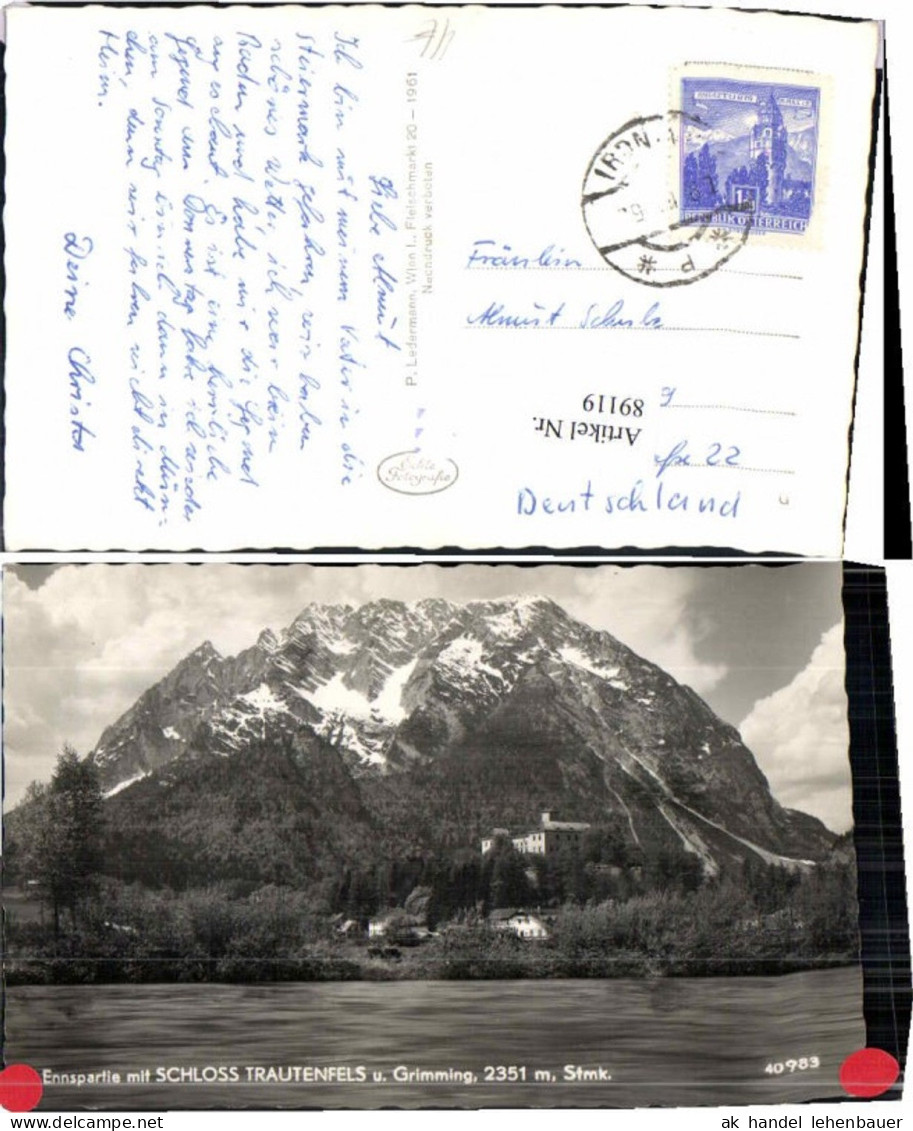 Liebe Almut
Ich bin mit meinem Vater in die
Steiermark gefahren, wir haben
schönes Wetter, ich war beim
Baden und habe mir die Gegend
angeschaut. Es ist eine herrliche
Gegend. Am Donnerstag fahre ich wieder
am Sonntag bin ich dann in Mün-
chen, denn wir fahren nicht direkt
Heim.
Deine Christa
P. Ledermann, Wien I., Fleischmarkt 20 – 1961
Nachdruck verboten
Echte
Fotografie
REPUBLIK ÖSTERREICH
Fräulein
Almut Schulz
Artikel Nr.
89119
22
Deutschland
Ennspartie mit SCHLOSS TRAUTENFELS u. Grimming, 2351 m, Stmk.
40983
ak handel lehenbauer